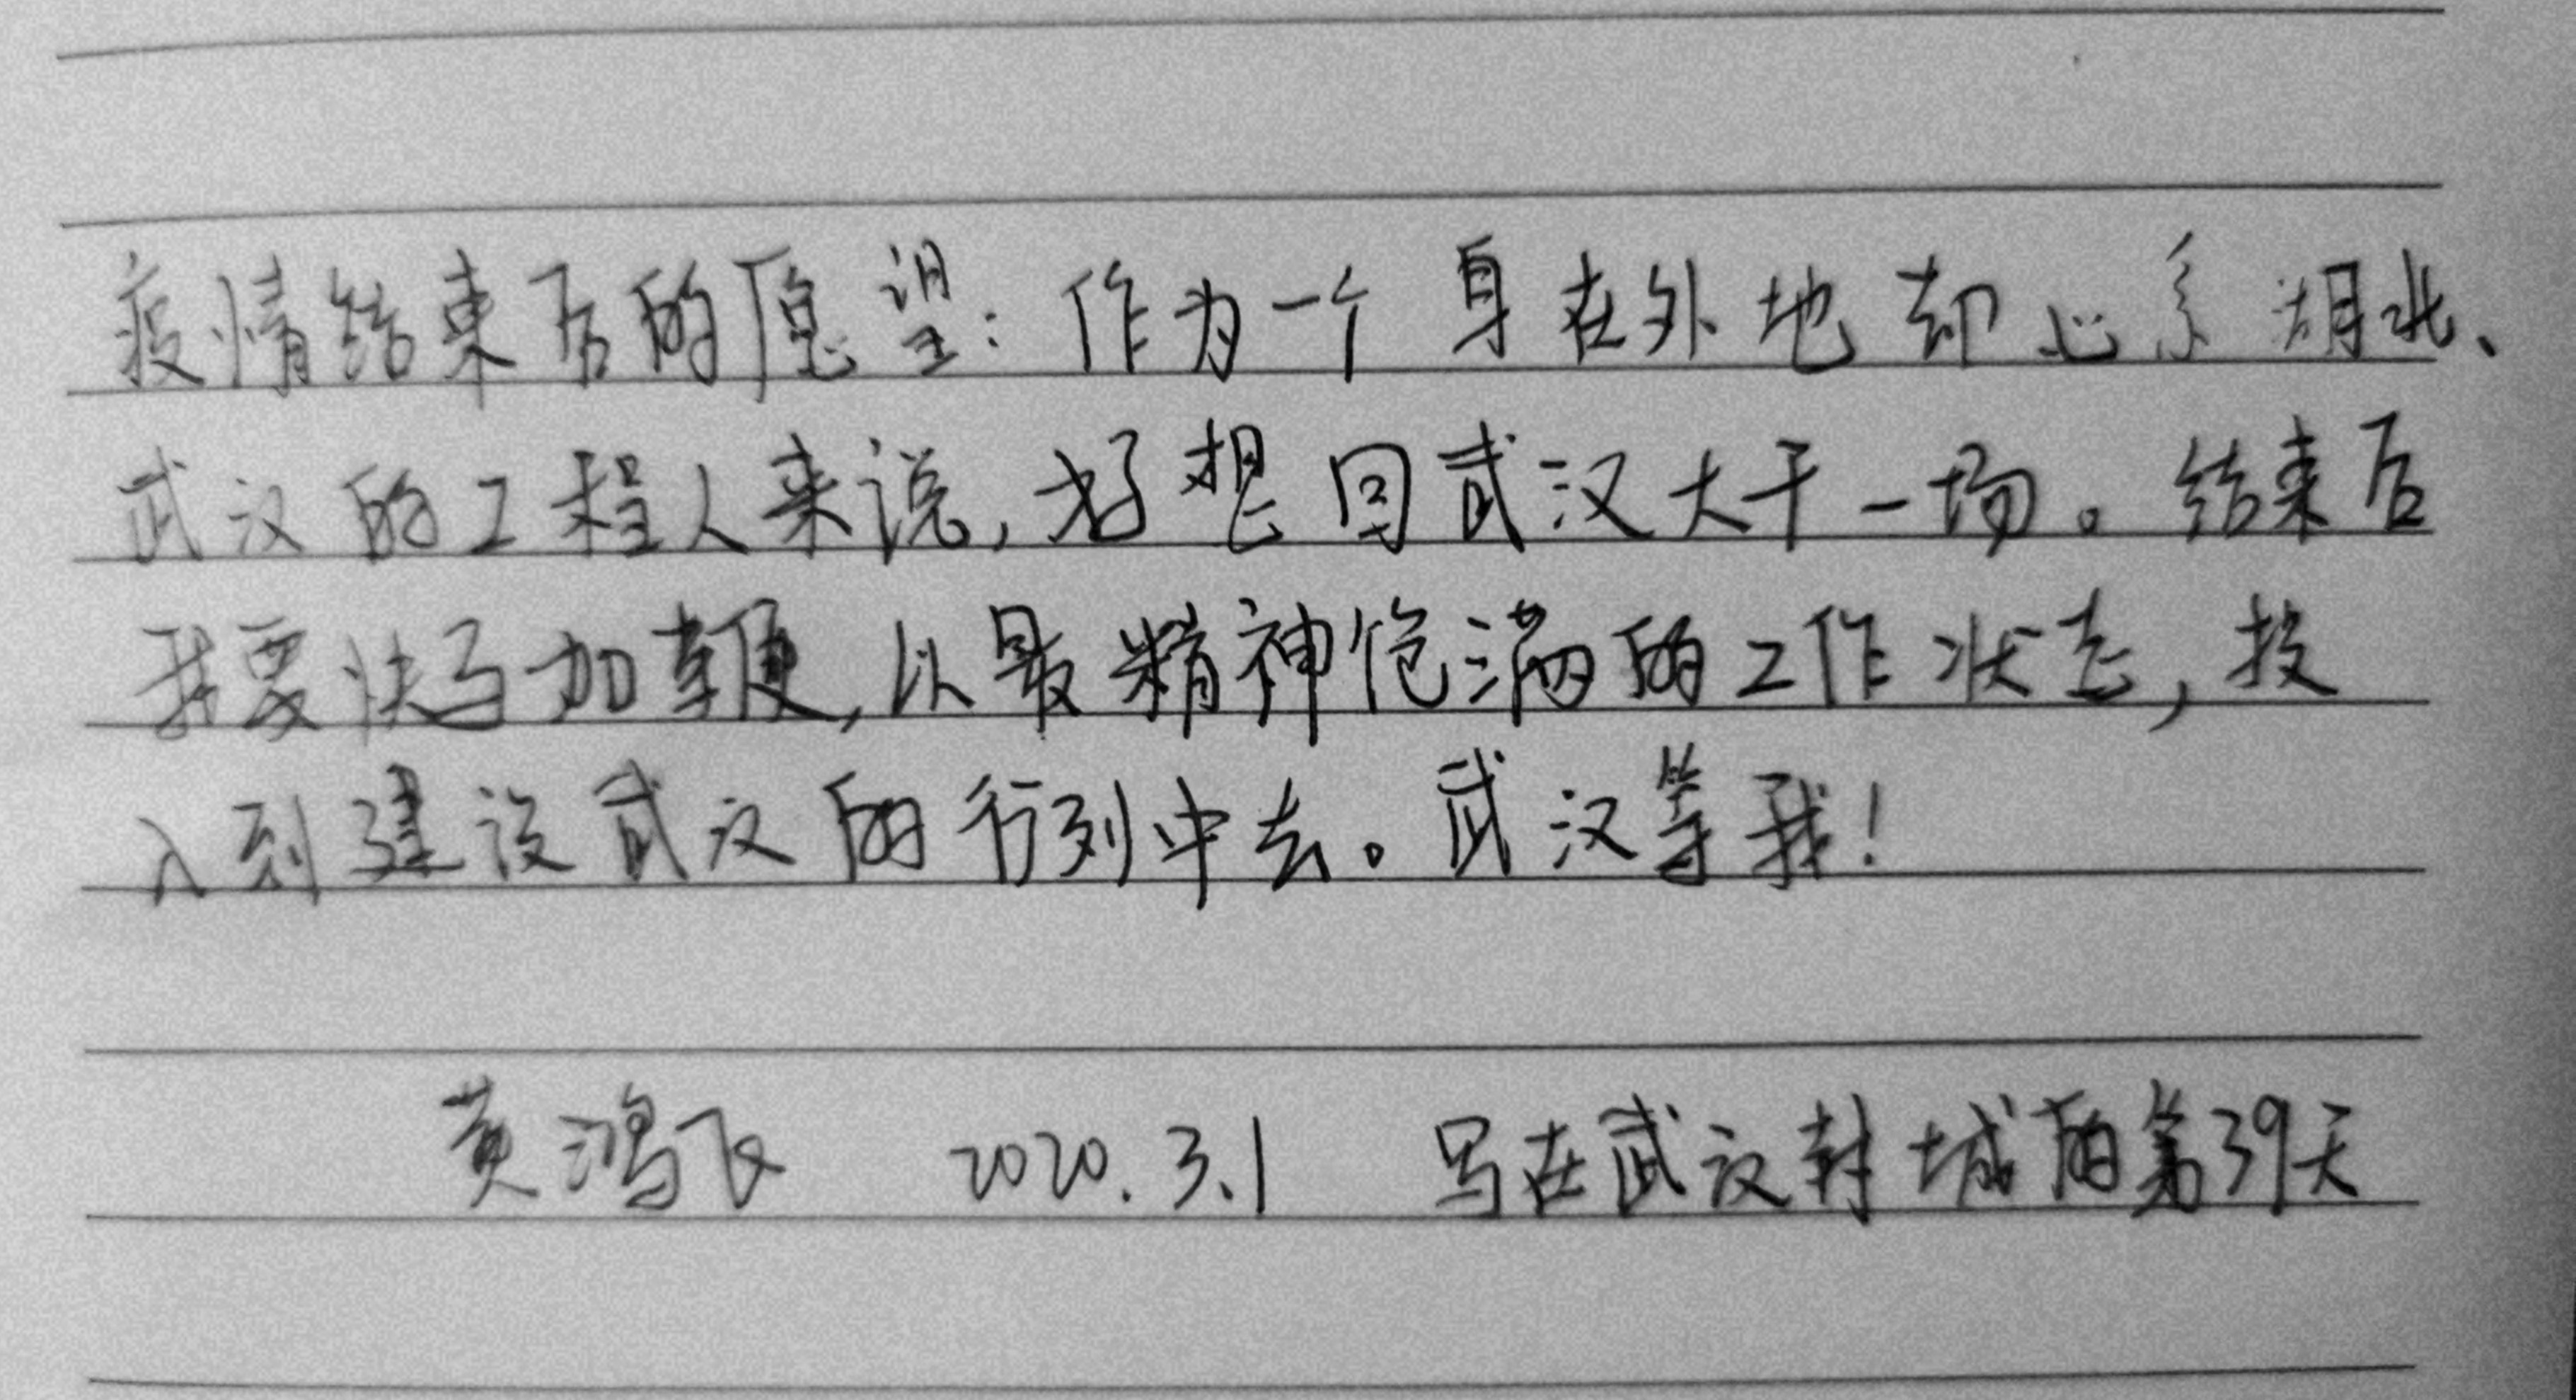 疫情结束后的愿望：作为一个身在外地却心系湖北、
武汉的工程人来说，好想回武汉大干一场。结束后
我要快马加鞭，以最精神饱满的工作状态，投
入到建设武汉的行列中去。武汉等我！
黄鸿飞 2020.3.1 写在武汉封城的第39天